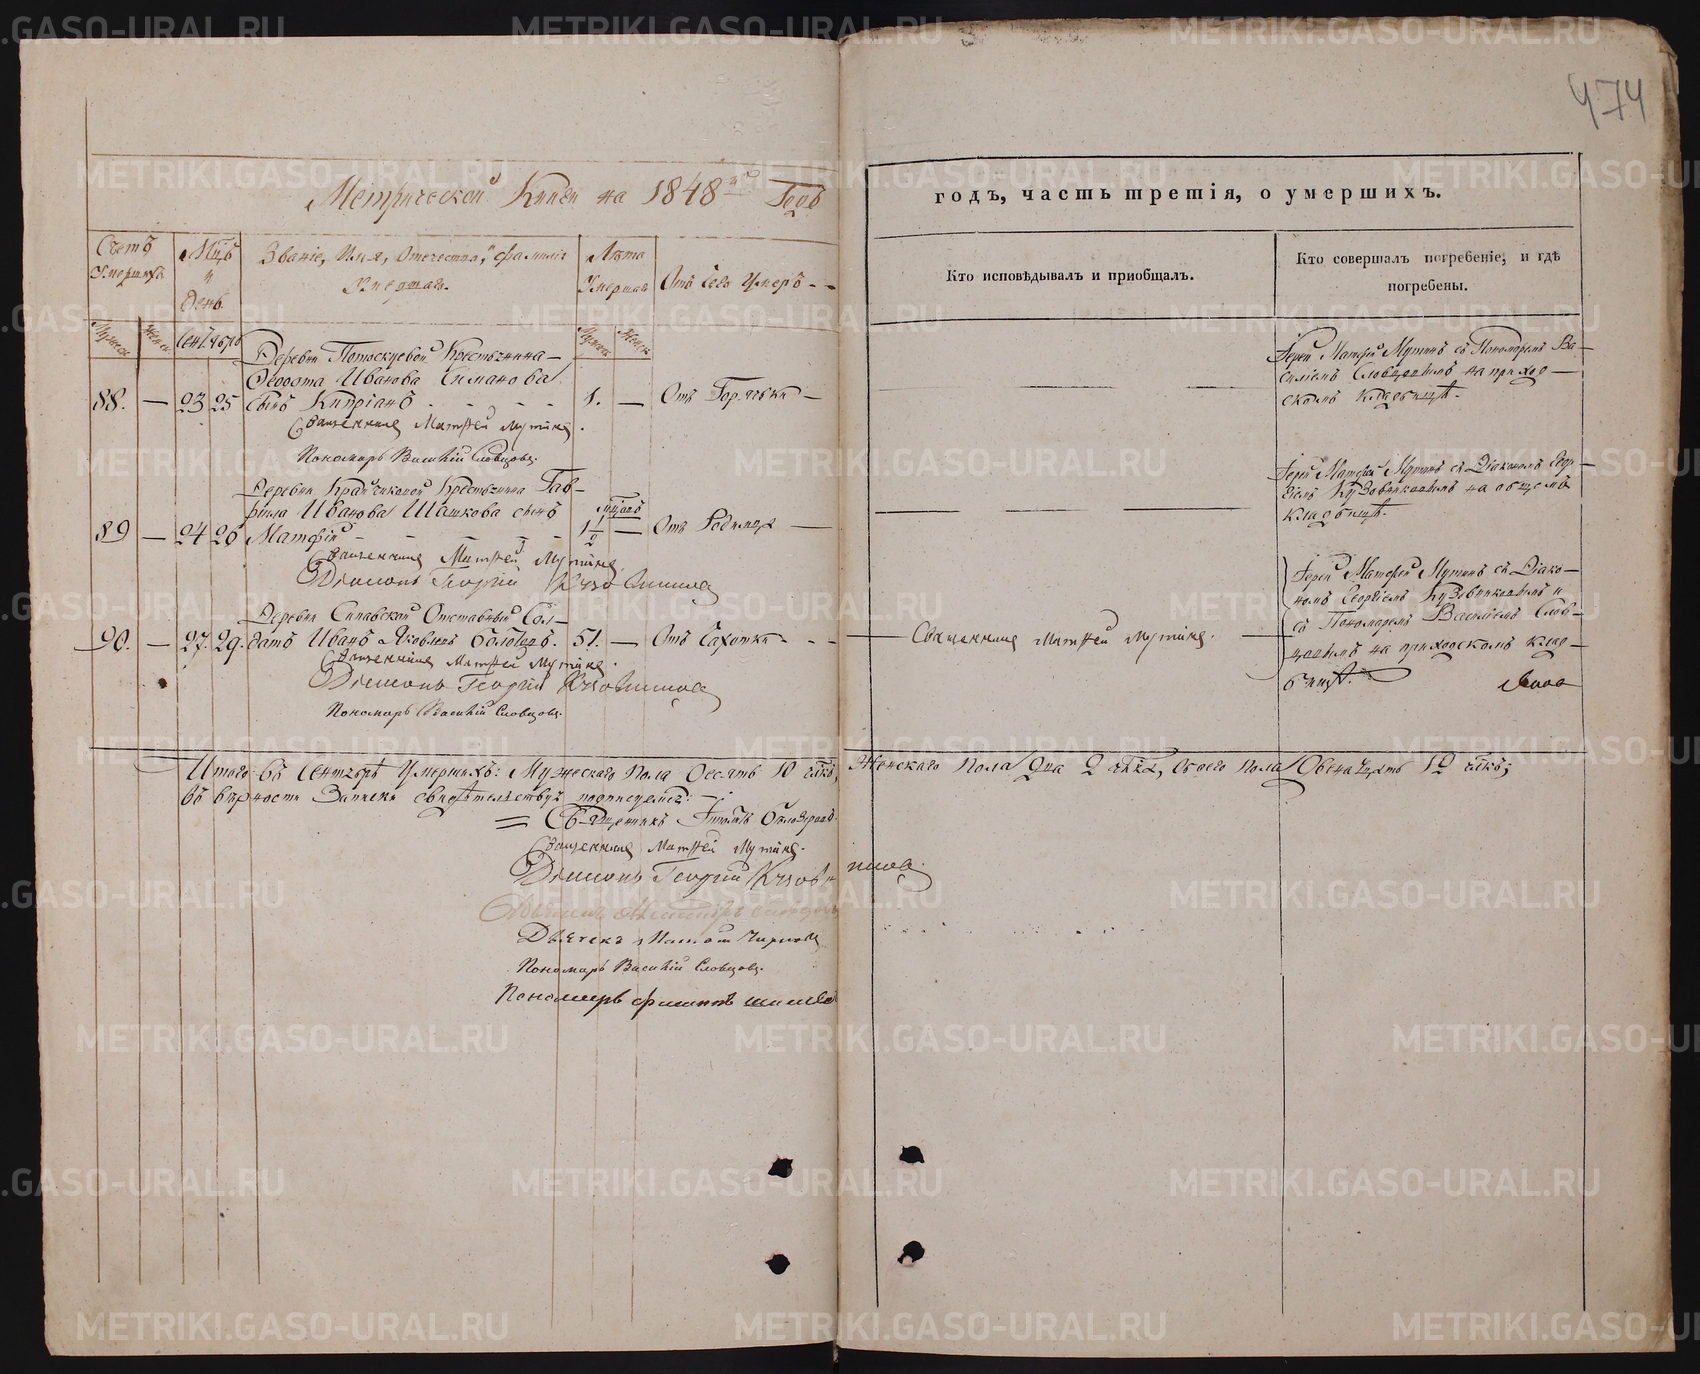 474
Метрической Книги на 1848й Годъ
годъ, часть третія, о умершихъ.
Счетъ Умершихъ
Мцъ и день
Званіе, Имя, Отечество, и фамилія Умершаго.
Лѣта Умершаго
Отъ чего Умеръ
Кто исповѣдывалъ и пріобщалъ.
Кто совершалъ погребеніе, и гдѣ погребены.
Мужеск Женск
Сентябрь
Мужск Женск
Деревни Потаскуевой Крестьянина
Ѳедота Иванова Симанова
88. — 23 25 сынъ Кипріанъ 1. — Отъ Горячки —
Священникъ Матѳей Мутинъ.
Пономарь Василій Словцовъ.
Іерей Матѳей Мутинъ съ Пономаремъ Ва-
силіемъ Словцовымъ на приход-
скомъ кладбищѣ.
Деревни Крайчиковой Крестьянина Гав-
ріила Иванова Шашкова сынъ
89 — 24 26 Матѳій 1/2 — Отъ Родимца —
Священникъ Матѳей Мутинъ
Діаконъ Георгій Кузовниковъ
Іерей Матѳей Мутинъ съ Діакономъ Геор-
гіемъ Кузовниковымъ на общемъ
кладбищѣ.
Деревни Синавской Отставный Сол-
90. — 27. 29. датъ Иванъ Яковлевъ 51. — Отъ Чахотки
Священникъ Матѳей Мутинъ.
Діаконъ Георгій Кузовниковъ
Пономарь Василій Словцовъ.
Священникъ Матѳей Мутинъ.
Іерей Матѳей Мутинъ съ Діако-
номъ Георгіемъ Кузовниковымъ и
съ Пономаремъ Василіемъ Слов-
цовымъ на приходскомъ клад-
бищѣ.
Итого въ Сентябрѣ Умершихъ: Мужескаго пола десять 10 Женскаго пола два 2 Обоего пола Двенадцать 12
въ вѣрности Записки свидѣтельствуя подписуемся:
Священникъ
Священникъ Матѳей Мутинъ.
Діаконъ Георгій Кузовниковъ.
Дьячекъ
Пономарь Василій Словцовъ.
Пономарь
METRIKI.GASO-URAL.RU